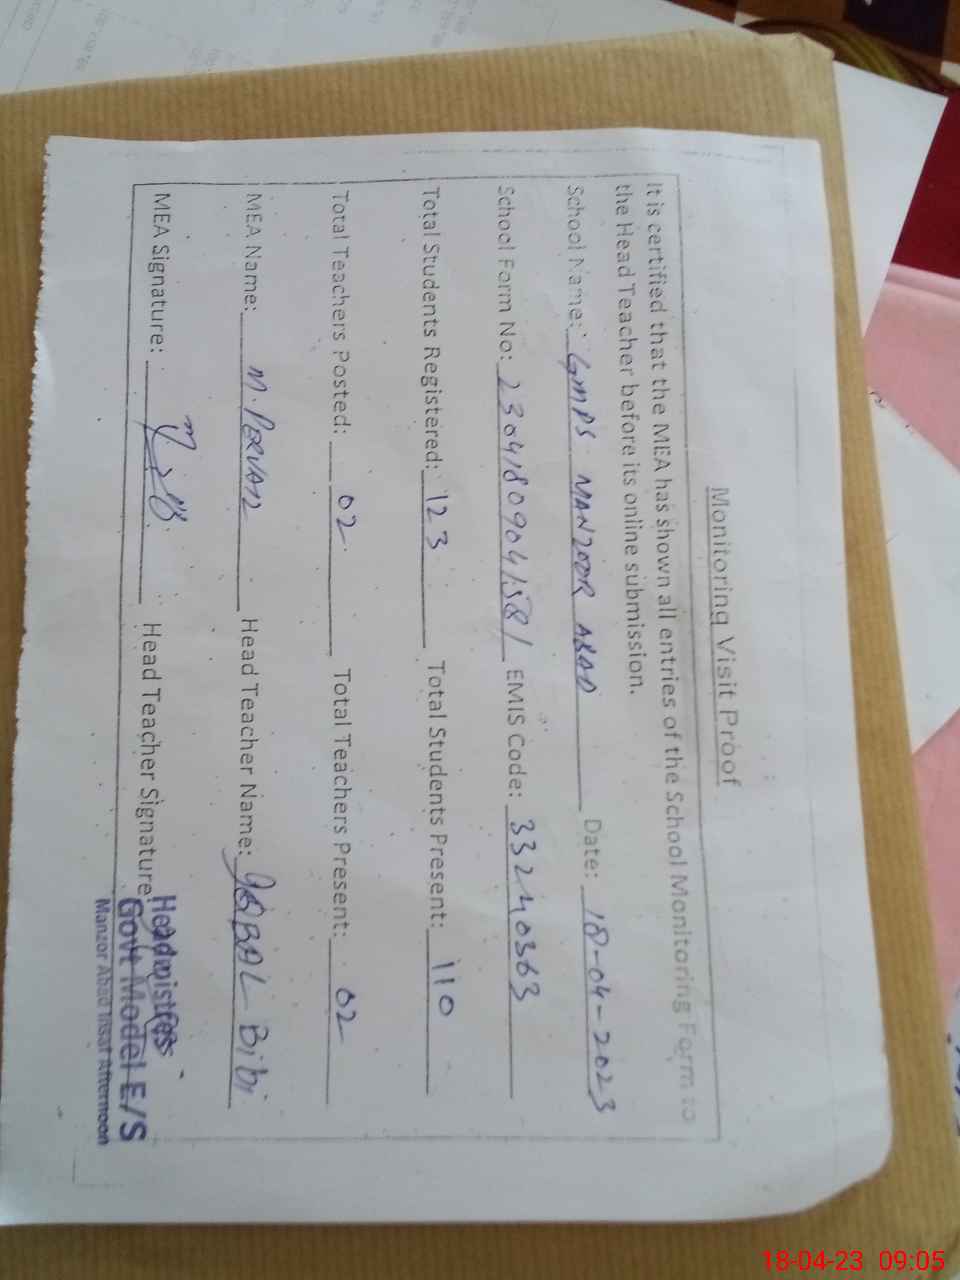 Monitoring Visit Proof
It is certified that the MEA has shown all entries of the School Monitoring Form to
the Head Teacher before its online submission.
School Name: GMPS MANZOOR ABAD Date: 18-04-2023
School Form No: 2304180904158/ EMIS Code: 33240363
Total Students Registered: 123 Total Students Present: 110
Total Teachers Posted: 02 Total Teachers Present: 02
MEA Name: M. Head Teacher Name: IQBAL Bibi
MEA Signature: Head Teacher Signature
Headmistress
Govt Model E/S
Manzor Abad Insaf Afternoon
18-04-23 09:05